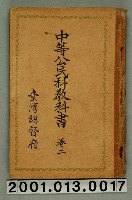 中等公民科教科書
卷二
臺灣總督府
2001.013.0017